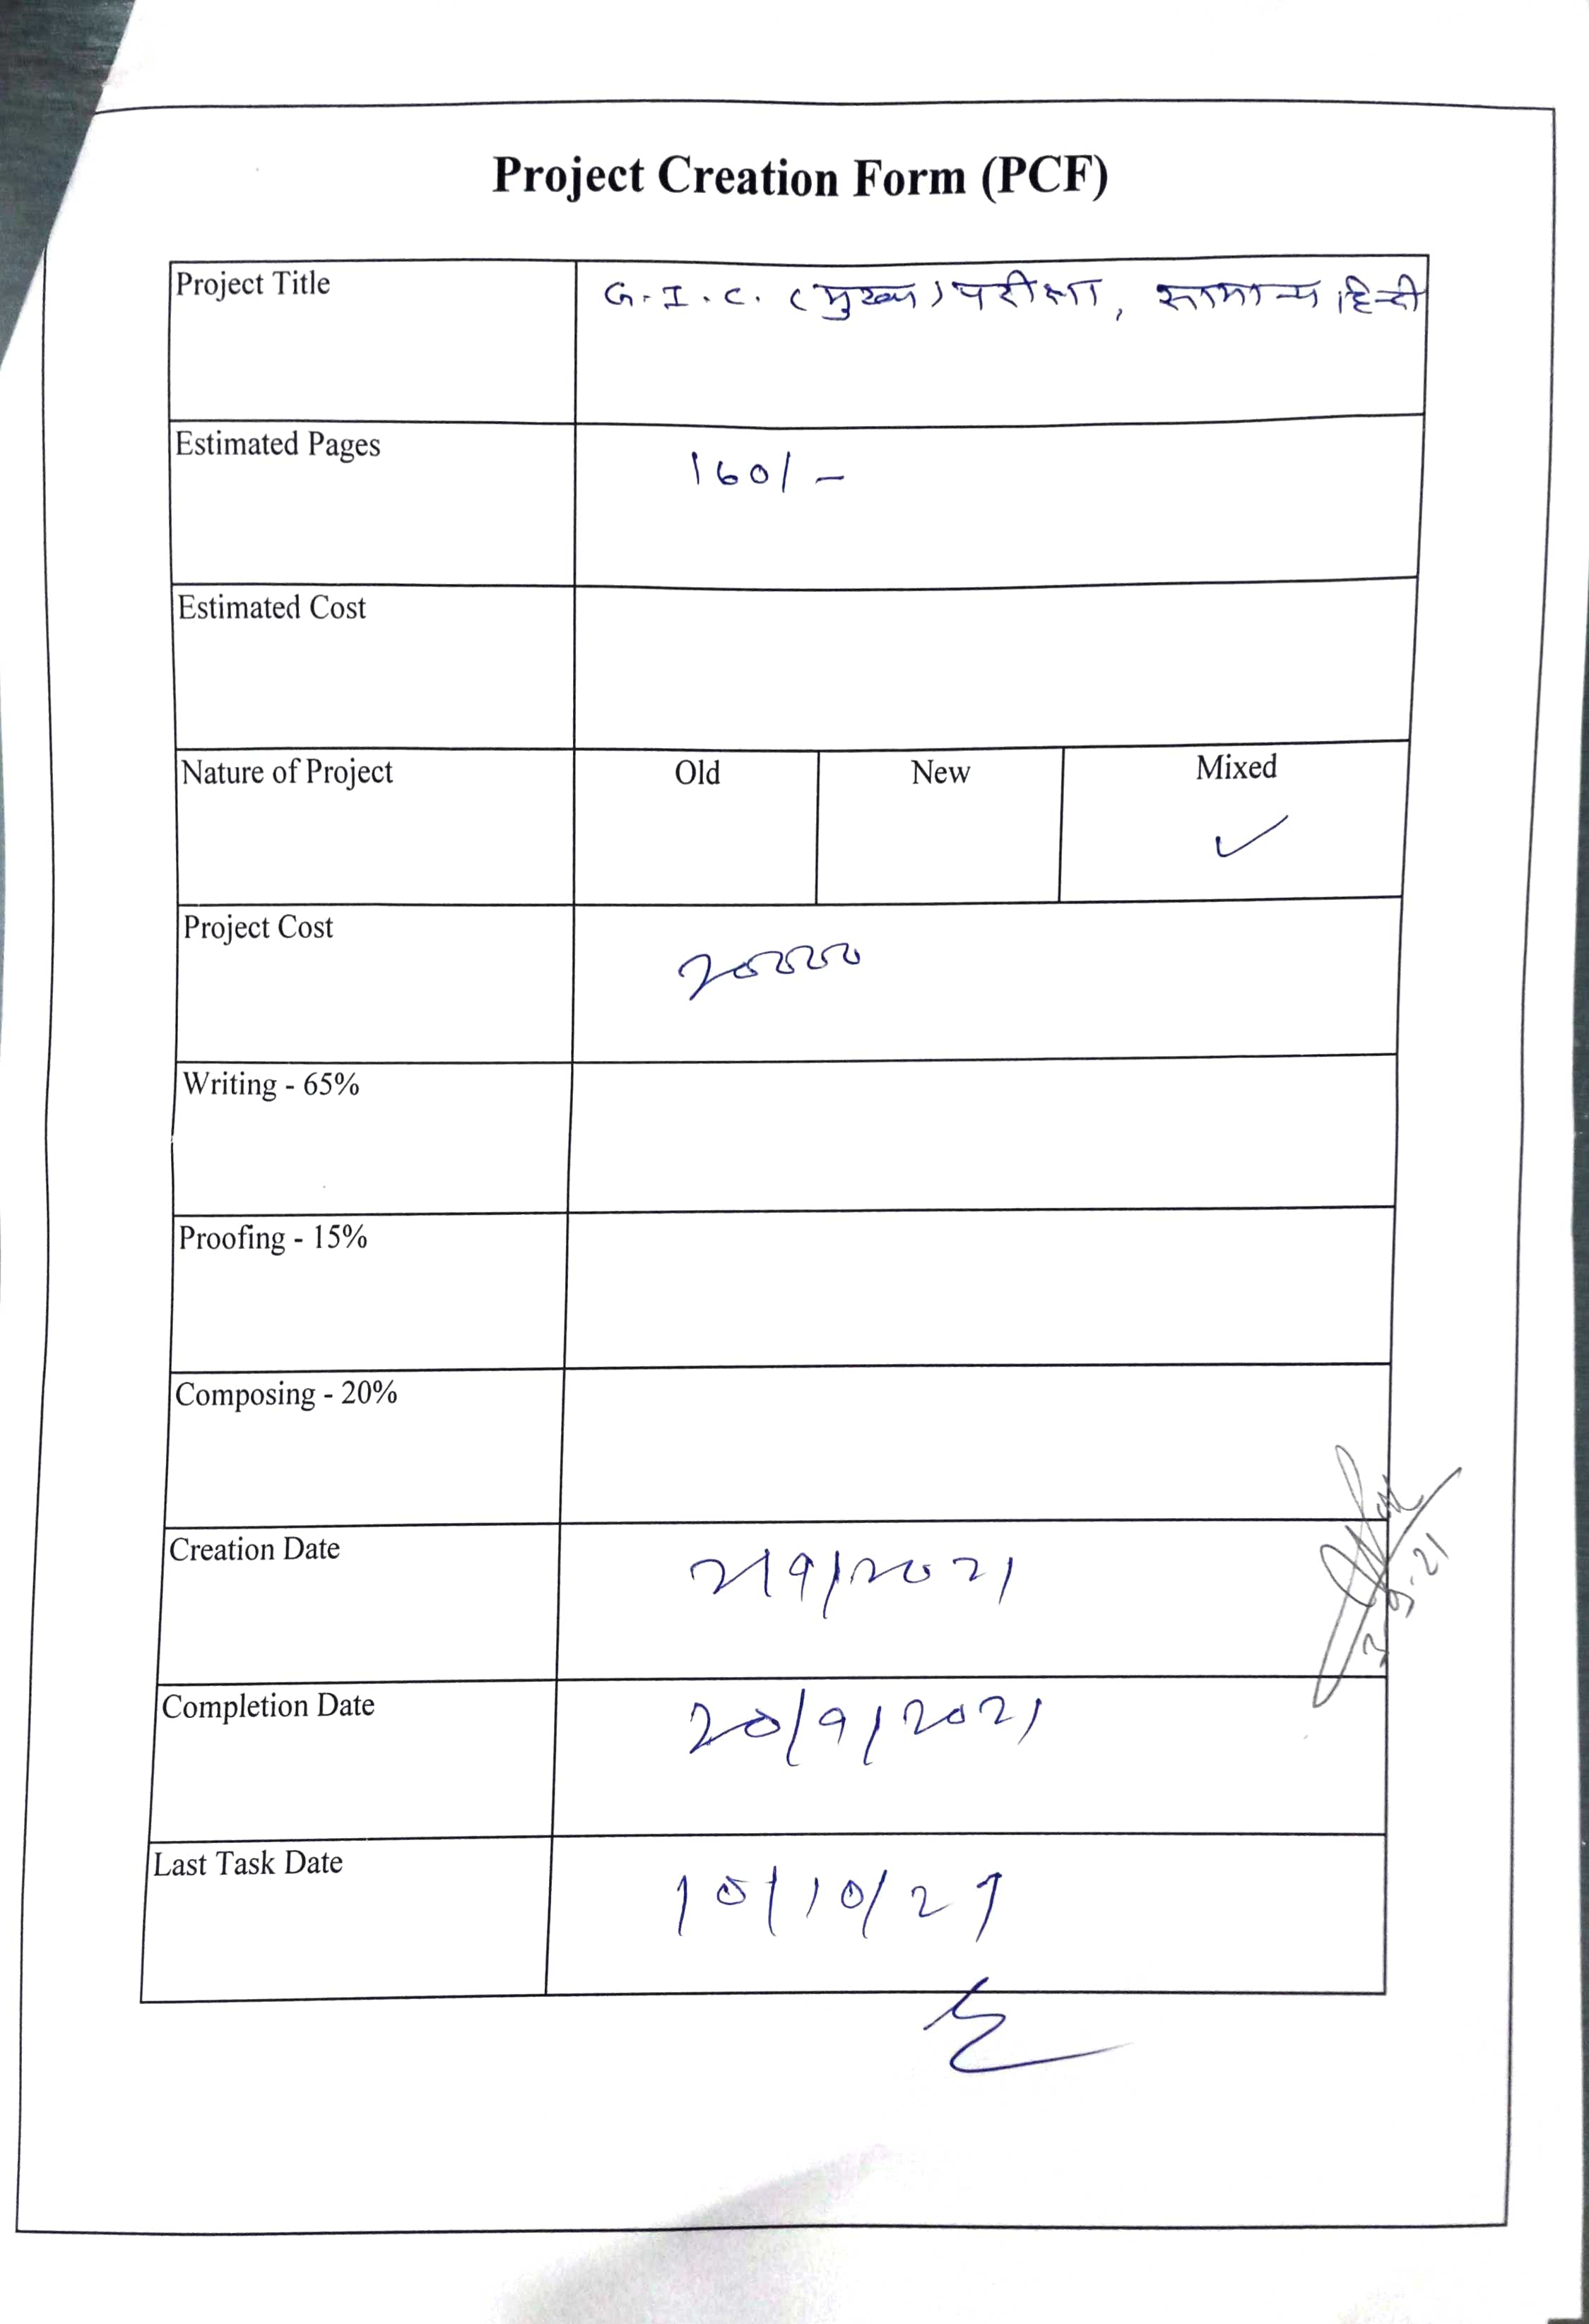 Project Creation Form (PCF)
Project Title G.I.C. (मुख्य) परीक्षा, सामान्य हिन्दी
Estimated Pages 160/-
Estimated Cost
Nature of Project Old New Mixed ✓
Project Cost 20000
Writing - 65%
Proofing - 15%
Composing - 20%
Creation Date 2/9/2021
Completion Date 20/9/2021
Last Task Date 10/10/21
2-9-21